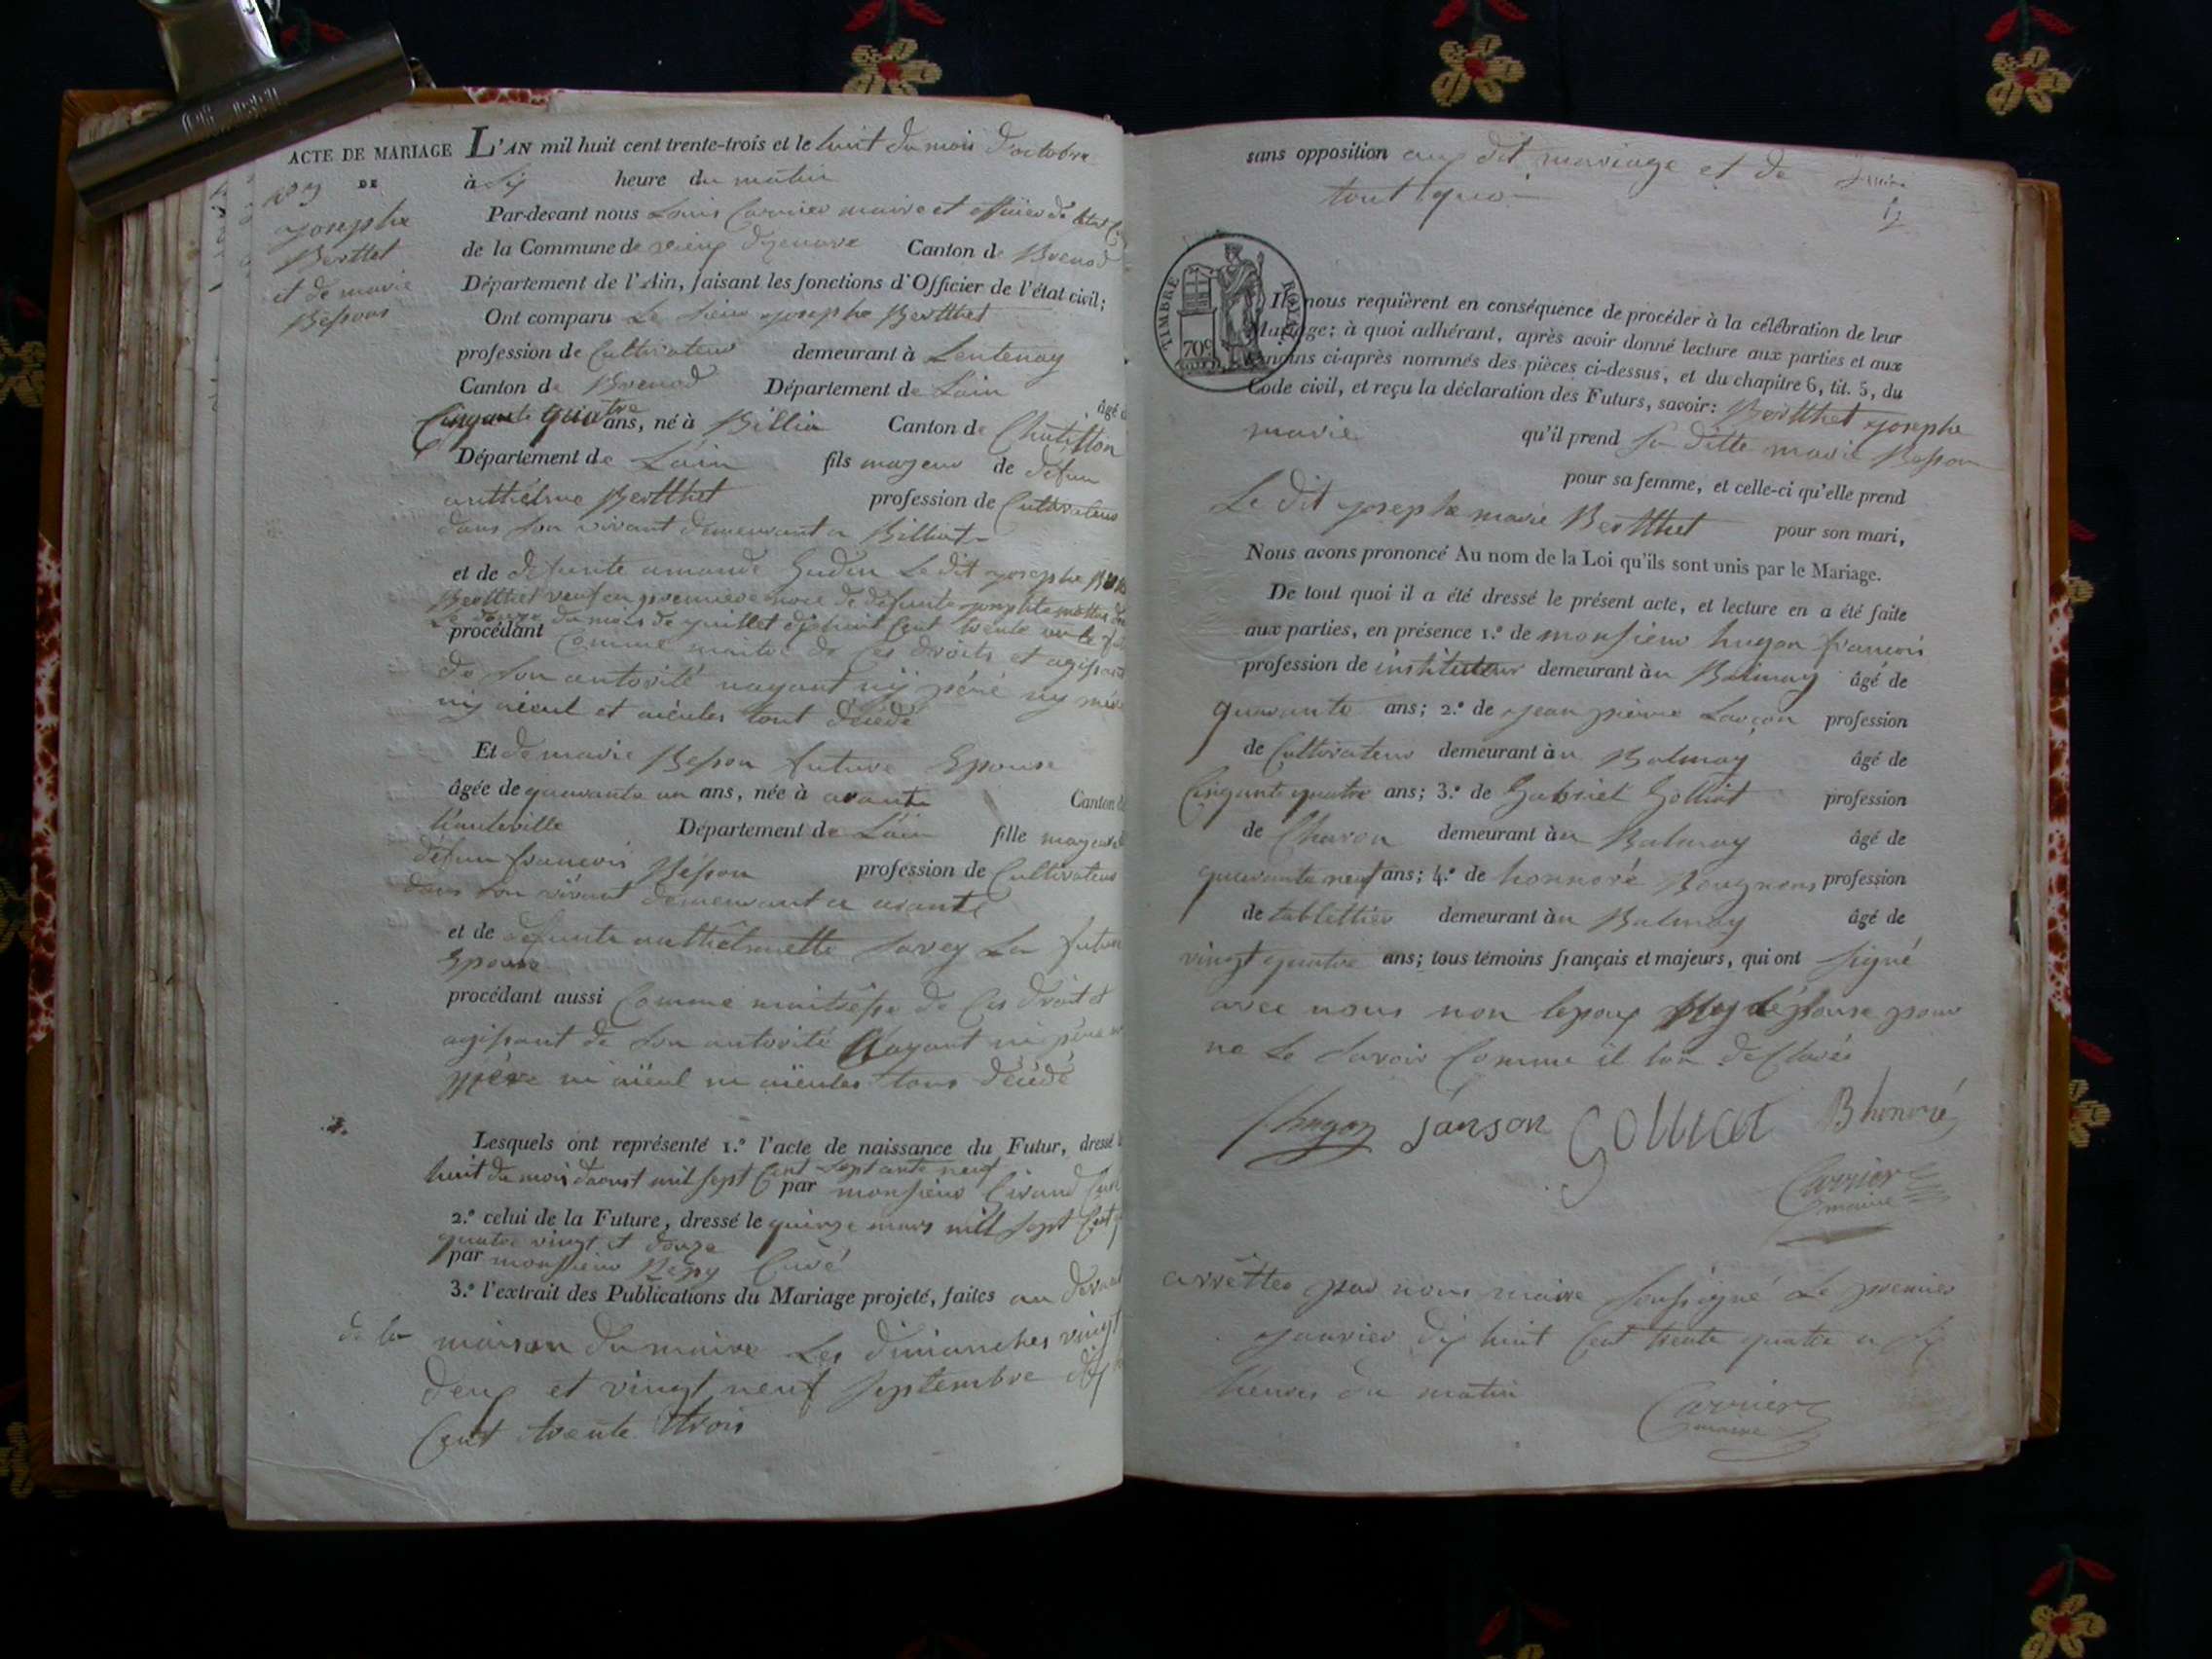 ACTE DE MARIAGE
DE
josephe
Berthet
et de marie
Besson
L'AN mil huit cent trente-trois et le huit du mois d'octobre
à six heure du matin
Par-devant nous Louis Carrier maire et officier de létat
de la Commune de vieux dizenave Canton de Brenod
Département de l'Ain, faisant les fonctions d'Officier de l'état civil;
Ont comparu Le sieur josephe Bertthet
profession de Cultivateur demeurant à Lentenay
Canton de Brenod Département de Lain
âgé
Cinquante quatre ans, né à Billia Canton de Chatillon
Département de Lain fils majeur de défun
anthélme Bertthet profession de Cultivateur
dans son vivant demeurant a Billiat
et de defunte amande Gudin Le dit josephe
Bertthet veuf en premiere noce de défunte
Le douze du mois de juillet dixhuit Cent trente
procédant Comme maitre de ses droits et agissant
de son autorité nayant ny père ny mère
ny aieul et aieules tout décédé
Et de marie Besson future Epouse
âgée de quarante un ans, née à arante Canton
hauteville Département de Lain fille majeure
défun francois Bésson profession de Cultivateur
dans son vivant demeurant a arante
et de defunte anthelmette Savey La future
Epouse
procédant aussi Comme maitresse de ses droit et
agissant de son autorité Nayant ni père ni
mère ni aïeul ni aïeules tous décédé
Lesquels ont représenté 1.º l'acte de naissance du Futur, dressé
huit du mois daoust mil sept Cent septante neuf
par monsieur Girand Curé
2.º celui de la Future, dressé le quinze mars mill sept Cent
quatre vingt et douze
par monsieur Curé
3.º l'extrait des Publications du Mariage projeté, faites au devant
de la maison du maire Les dimanches vingt
deux et vingt neuf septembre dix
Cent trente trois
sans opposition au dit mariage et de
tout quoi
TIMBRE ROYAL
70c
Ils nous requièrent en conséquence de procéder à la célébration de leur
Mariage; à quoi adhérant, après avoir donné lecture aux parties et aux
témoins ci-après nommés des pièces ci-dessus, et du chapitre 6, tit. 5, du
Code civil, et reçu la déclaration des Futurs, savoir: Bertthet josephe
marie qu'il prend la ditte marie Besson
pour sa femme, et celle-ci qu'elle prend
Le dit josephe marie Bertthet pour son mari,
Nous avons prononcé Au nom de la Loi qu'ils sont unis par le Mariage.
De tout quoi il a été dressé le présent acte, et lecture en a été faite
aux parties, en présence 1.º de monsieur hugon francois
profession de instituteur demeurant à u Balmay âgé de
quarante ans; 2.º de jean pierre Lançon profession
de Cultivateur demeurant à u Balmay âgé de
Cinquante quatre ans; 3.º de Gabriel Golliat profession
de Charon demeurant à u Balmay âgé de
quarante neuf ans; 4.º de honnoré profession
de tablettier demeurant à u Balmay âgé de
vingt quatre ans; tous témoins français et majeurs, qui ont signé
avec nous non lepoux ny lépouse pour
ne Le savoir Comme il lon declaré
hugon janson Golliat B honoré
Carrier
maire
arrêttée par nous maire soussigné Le premier
janvier dix huit Cent trente quatre a six
heures du matin
Carrier
maire